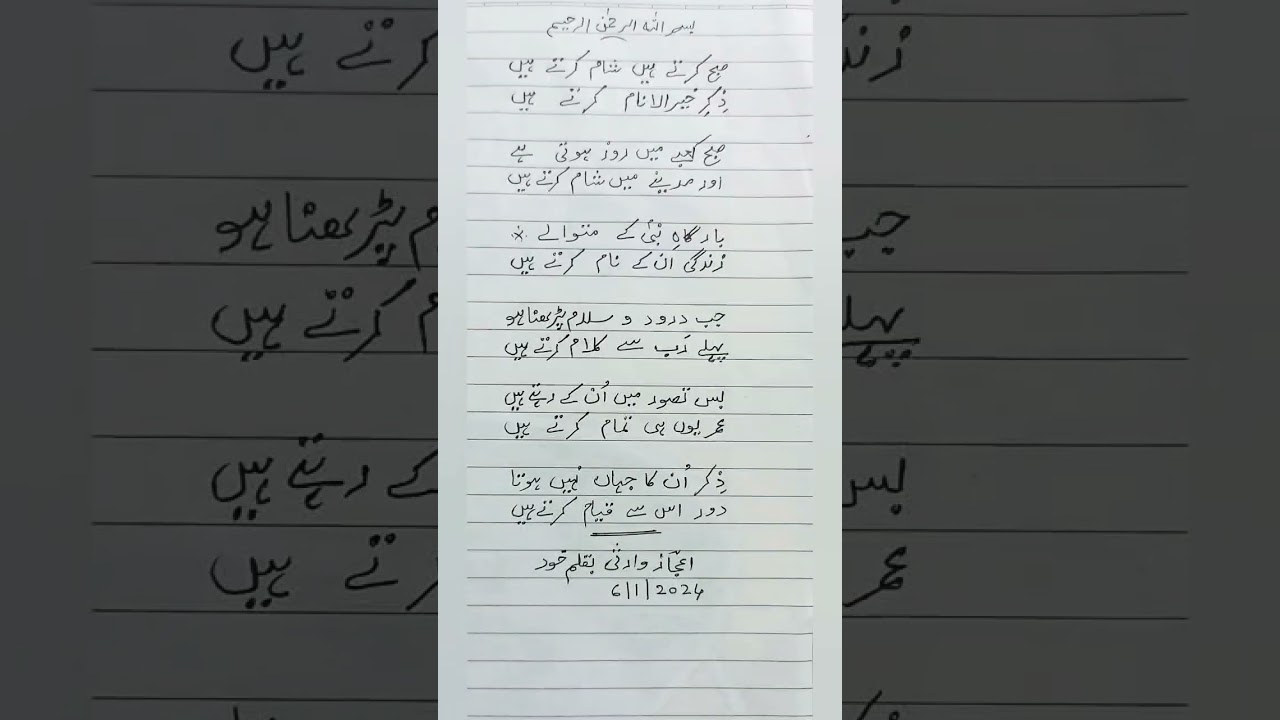 بسم اللہ الرحمٰن الرحیم
صبح کرتے ہیں شام کرتے ہیں
ذِکرِ خیرالانام کرتے ہیں
صبح کعبے میں روز ہوتی ہے
اور مدینے میں شام کرتے ہیں
بارگاہِ نبیؐ کے متوالے
زندگی ان کے نام کرتے ہیں
جب درود و سلام پڑھنا ہو
پہلے رَب سے کلام کرتے ہیں
بس تصور میں اُن کے رہتے ہیں
عمر یوں ہی تمام کرتے ہیں
ذِکر اُن کا جہاں نہیں ہوتا
دور اس سے قیام کرتے ہیں
اعجاز وارثی بقلم خود
6/1/2024